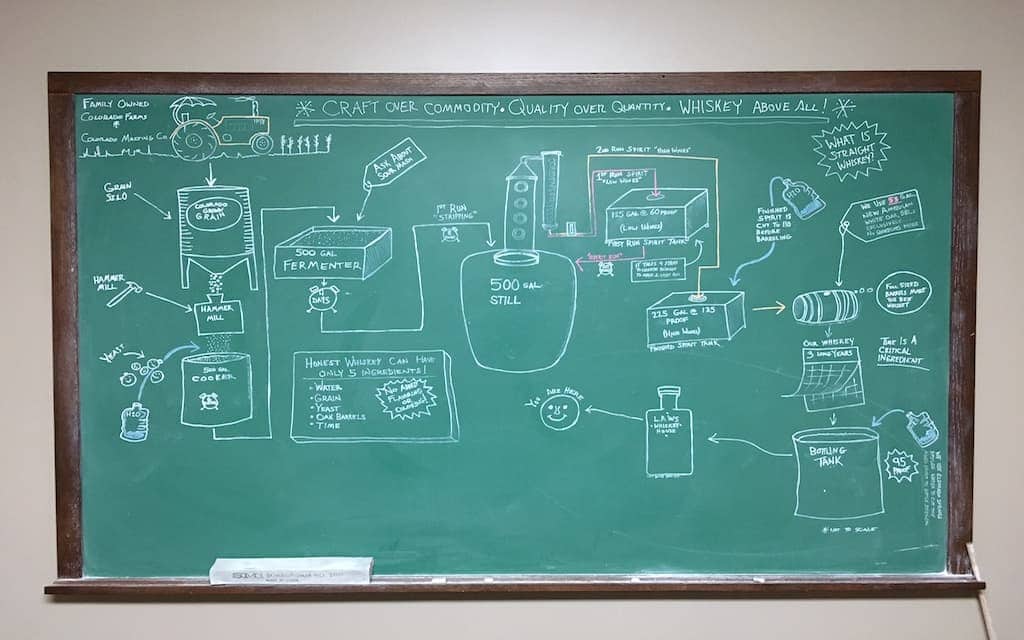 FAMILY OWNED
COLORADO FARMS
&
COLORADO MALTING CO.
* CRAFT OVER COMMODITY • QUALITY OVER QUANTITY • WHISKEY ABOVE ALL! *
WHAT IS
STRAIGHT
WHISKEY?
GRAIN
SILO
COLORADO
GROWN
GRAIN
HAMMER
MILL
HAMMER
MILL
YEAST
H2O
500 GAL
COOKER
ASK ABOUT
SOUR MASH
500 GAL
FERMENTER
DAYS
1ST RUN
"STRIPPING"
HONEST WHISKEY CAN HAVE
ONLY 5 INGREDIENTS!
• WATER
• GRAIN
• YEAST
• OAK BARRELS
• TIME
NO ADDED
FLAVORING
OR
COLORING!
500 GAL
STILL
2ND RUN SPIRIT "HIGH WINES"
1ST RUN SPIRIT
"LOW WINES"
125 GAL @ 60 PROOF
(LOW WINES)
FIRST RUN SPIRIT TANK
"SPIRIT RUN"
IT TAKES 4 FIRST
225 GAL @ 125
PROOF
(HIGH WINES)
FINISHED SPIRIT TANK
H2O
FINISHED
SPIRIT IS
CUT TO 110
BEFORE
BARRELING
WE USE 53 GAL
NEW AMERICAN
WHITE OAK BBL.
EXCLUSIVELY
FULL SIZED
BARRELS MAKE
THE BEST
WHISKEY
OUR WHISKEY
3 LONG YEARS
TIME IS A
CRITICAL
INGREDIENT
BOTTLING
TANK
95
PROOF
* NOT TO SCALE
LAWS
WHISKEY
HOUSE
YOU ARE HERE